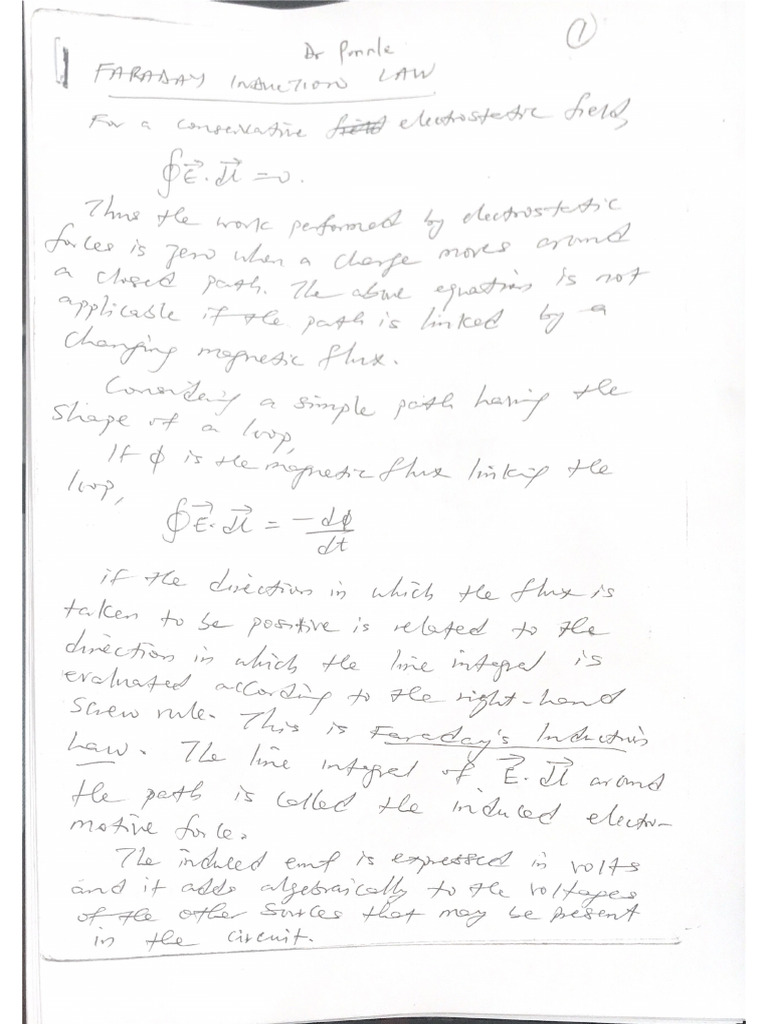 ①
Dr
FARADAY INDUCTION LAW
For a conservative field electrostatic field,
∮E⃗.dl⃗ = 0.
Thus the work performed by electrostatic
forces is zero when a charge moves around
a closed path. The above equation is not
applicable if the path is linked by a
changing magnetic flux.
Considering a simple path having the
shape of a loop,
If ϕ is the magnetic flux linking the
loop,
∮E⃗.dl⃗ = -dϕ/dt
if the direction in which the flux is
taken to be positive is related to the
direction in which the line integral is
evaluated according to the right-hand
screw rule. This is Faraday's Induction
Law. The line integral of E⃗.dl⃗ around
the path is called the induced electro-
motive force.
The induced emf is expressed in volts
and it adds algebraically to the voltages
of the other sources that may be present
in the circuit.